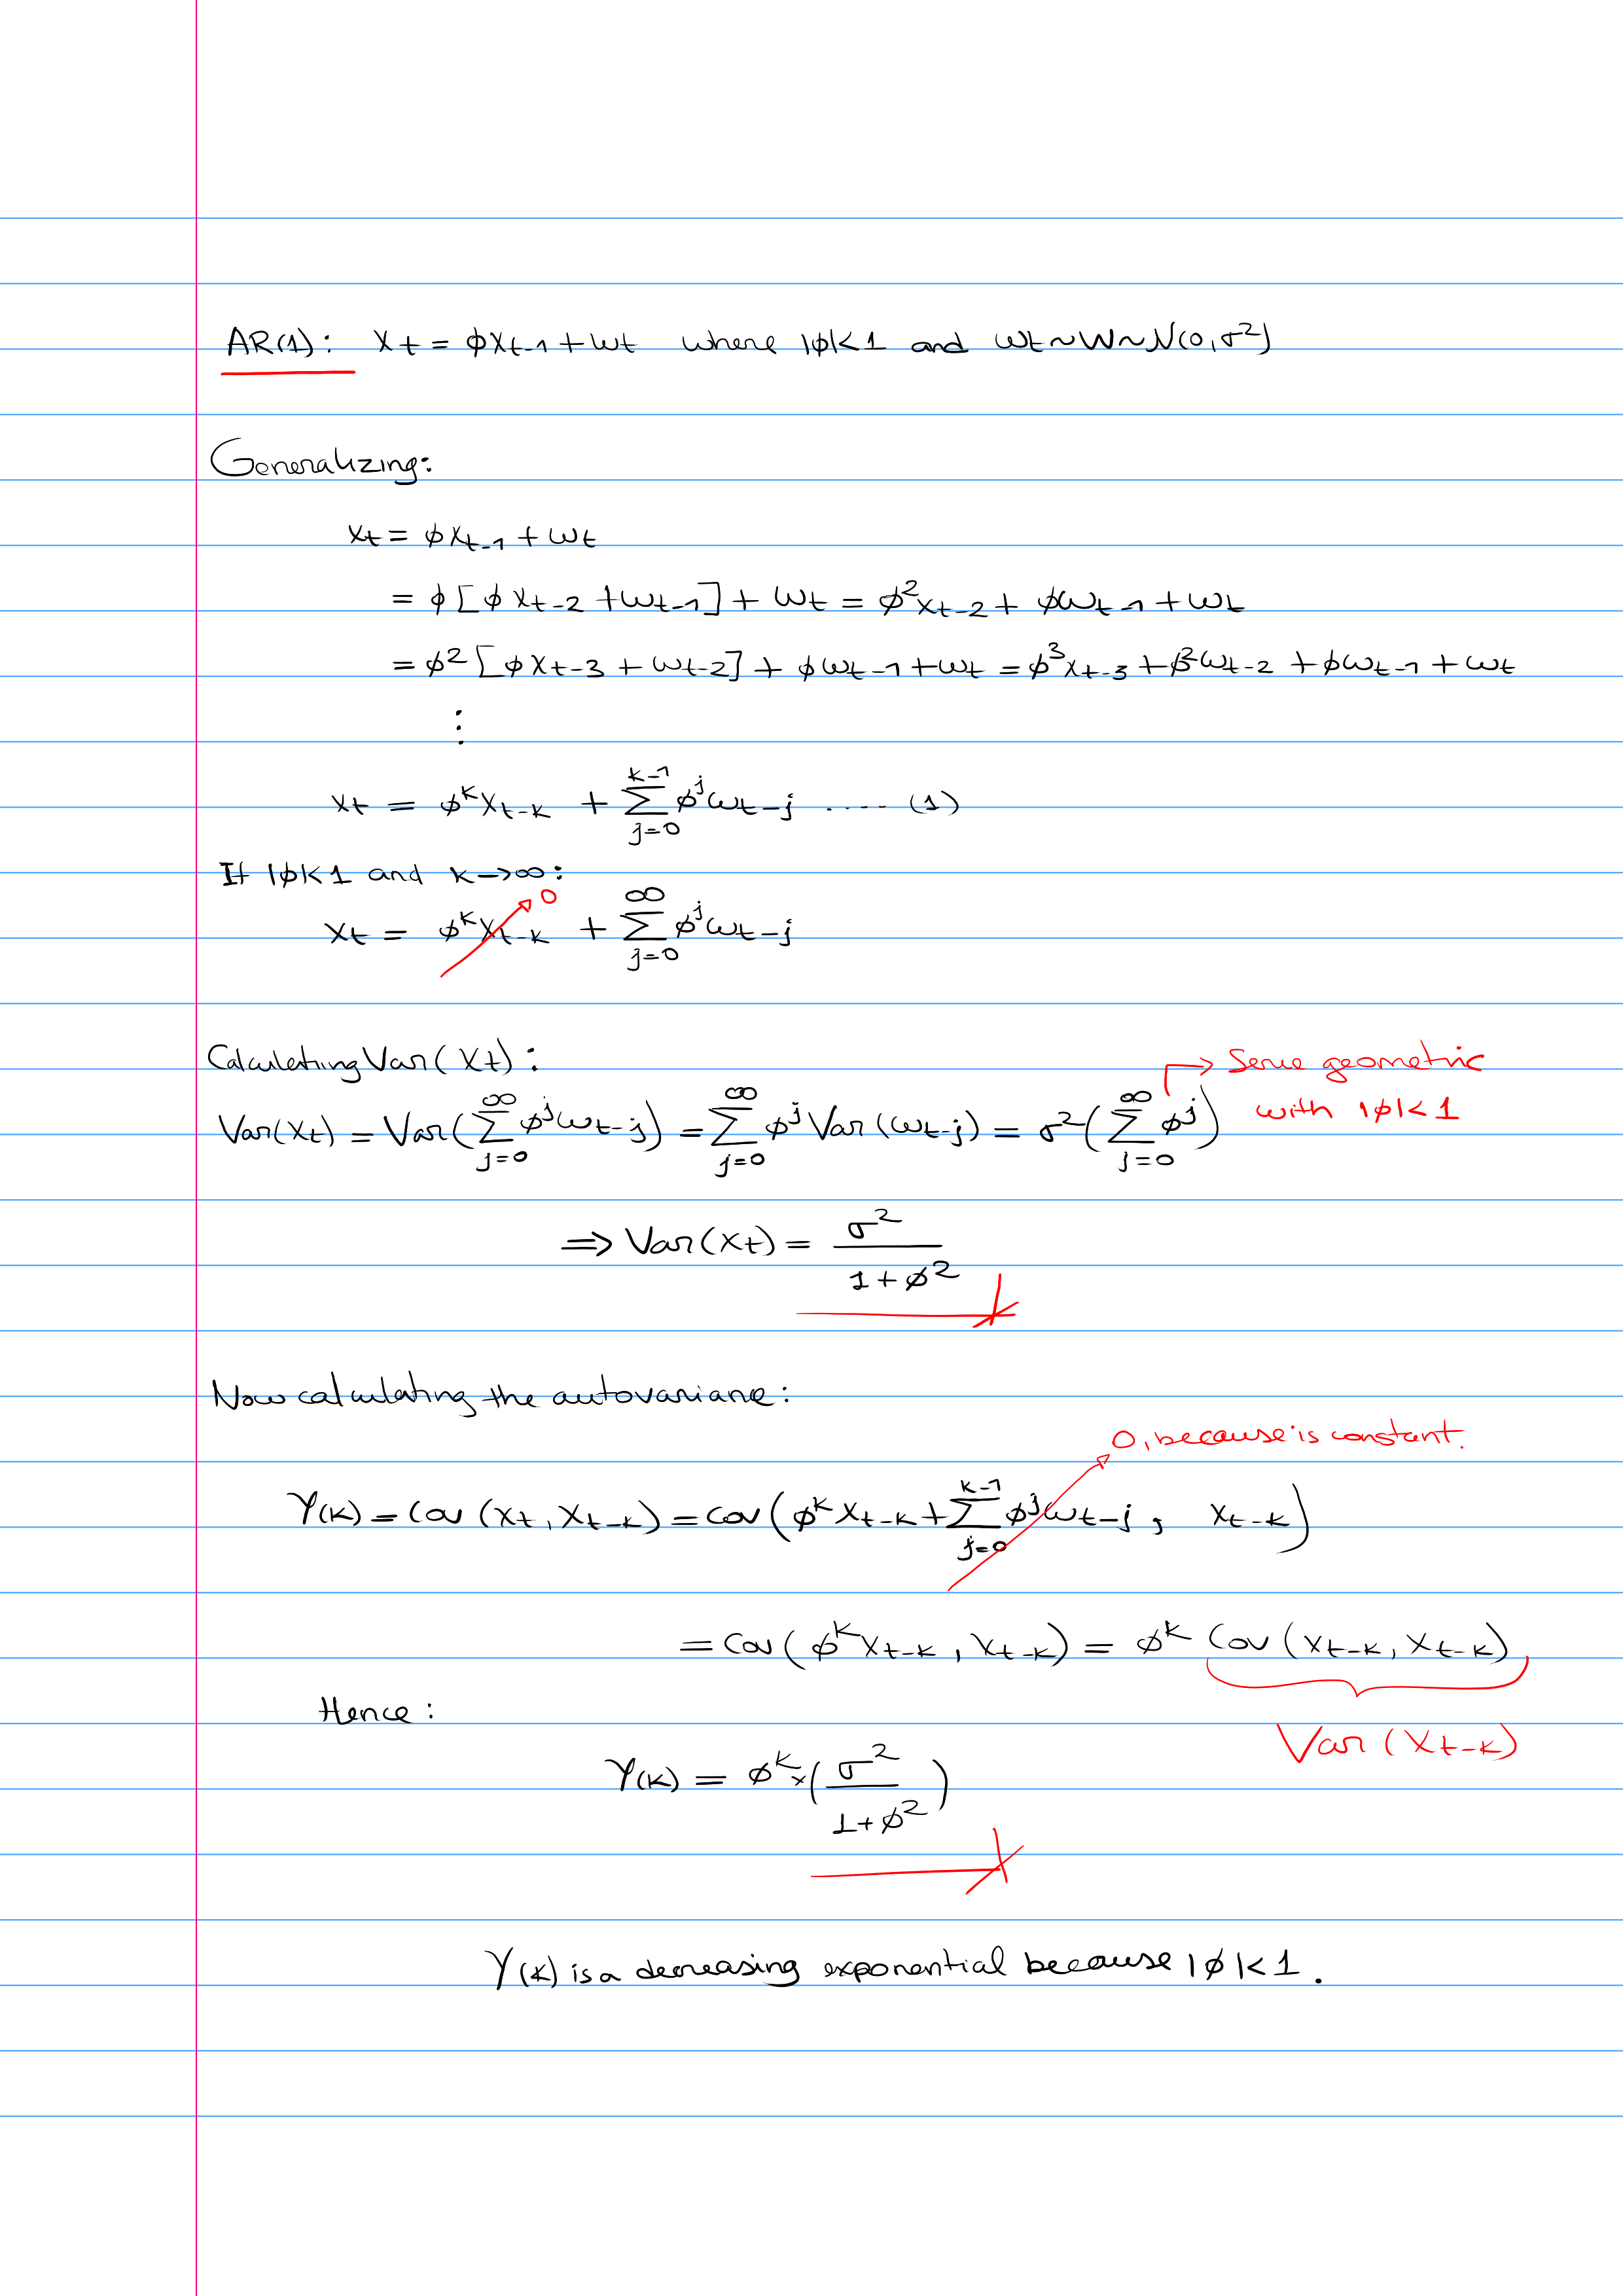 AR(1): Xt = ϕXt-1 + wt where |ϕ|<1 and wt ~ W ~ N(0, σ²)
Generalizing:
xt = ϕXt-1 + wt
= ϕ [ϕ Xt-2 + wt-1] + wt = ϕ²xt-2 + ϕwt-1 + wt
= ϕ² [ϕXt-3 + wt-2] + ϕwt-1 + wt = ϕ³xt-3 + ϕ²wt-2 + ϕwt-1 + wt
⋮
xt = ϕ^k Xt-k + Σ_{j=0}^{k-1} ϕ^j wt-j ..... (1)
If |ϕ|<1 and k→∞:
xt = ϕ^k Xt-k → 0 + Σ_{j=0}^{∞} ϕ^j wt-j
Calculating Var(Xt):
→ Serie geometric
with |ϕ|<1
Var(Xt) = Var(Σ_{j=0}^{∞} ϕ^j wt-j) = Σ_{j=0}^{∞} ϕ^j Var(wt-j) = σ²(Σ_{j=0}^{∞} ϕ^j)
⇒ Var(Xt) = σ² / (1+ϕ²)
Now calculating the autovariance:
0, because is constant.
γ(k) = Cov (Xt, Xt-k) = Cov(ϕ^k Xt-k + Σ_{j=0}^{k-1} ϕ^j wt-j , Xt-k)
= Cov(ϕ^k Xt-k, Xt-k) = ϕ^k Cov(Xt-k, Xt-k)
Hence:
Var(Xt-k)
γ(k) = ϕ^k × (σ² / (1+ϕ²))
γ(k) is a decreasing exponential because |ϕ|<1.